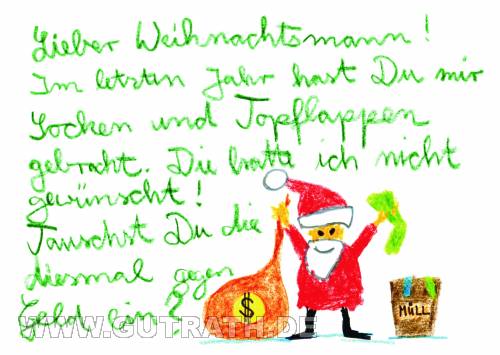 Lieber Weihnachtsmann!
Im letzten Jahr hast Du mir
Socken und Topflappen
gebracht. Die hatte ich nicht
gewünscht!
Tauschst Du die
diesmal gegen
Geld ein?
$
MÜLL
WWW.GUTRATH.DE